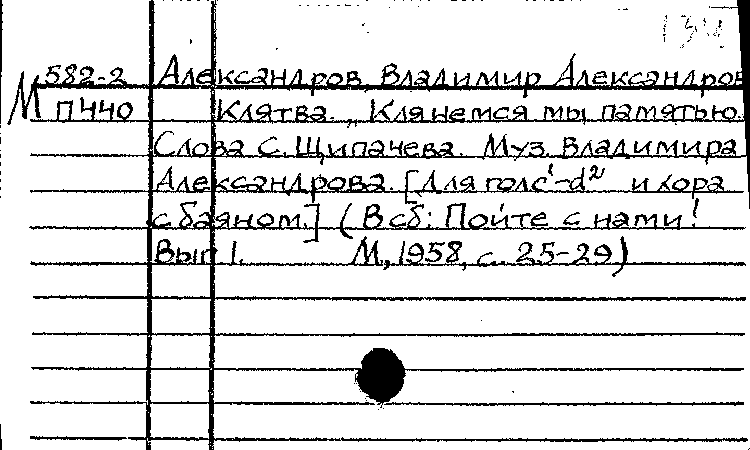 134
М 582-2 Александров, Владимир Александров
П440 Клятва. „Клянемся мы памятью.
Слова С. Щипачева. Муз. Владимира
Александрова. [Для голс'-d² и хора
с баяном.] (В сб: Пойте с нами!
Вып 1. М., 1958, с. 25-29)